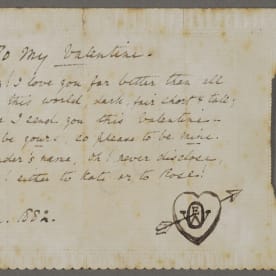 To My Valentine.
! I love you far better than all
this world, dark, fair short & tall;
I send you this Valentine
be yours, so please to be mine.
der's name, Oh! never disclose
either to Kate or to Rose!
1882.